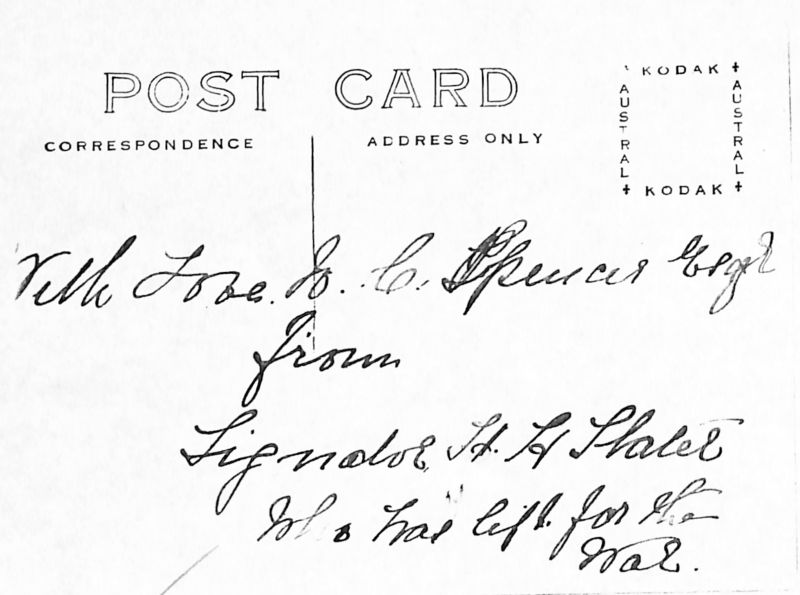 POST CARD
CORRESPONDENCE
ADDRESS ONLY
KODAK
AUSTRAL
AUSTRAL
KODAK
With Love. W. C. Spencer Esqr
from
Signalor. H. Slater
Who has left. for the
War.